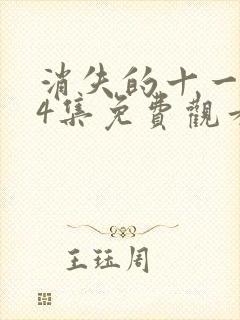 消失的十一
4集免費觀
王珏周